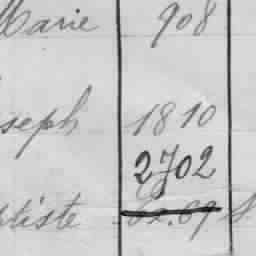 Marie 908
seph 1810
2702
ptiste 62.69